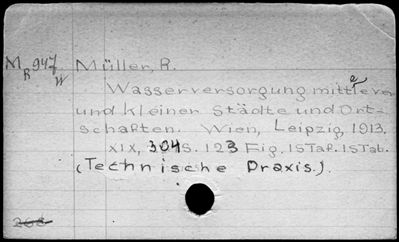 M_R 947 W Müller, R.
Wasserversorgung mittlerer
und kleiner Städte und Ort-
schaften. Wien, Leipzig, 1913.
XIX, 304 S. 123 Fig. 1 STaf. 1 STab.
(Technische Praxis.).